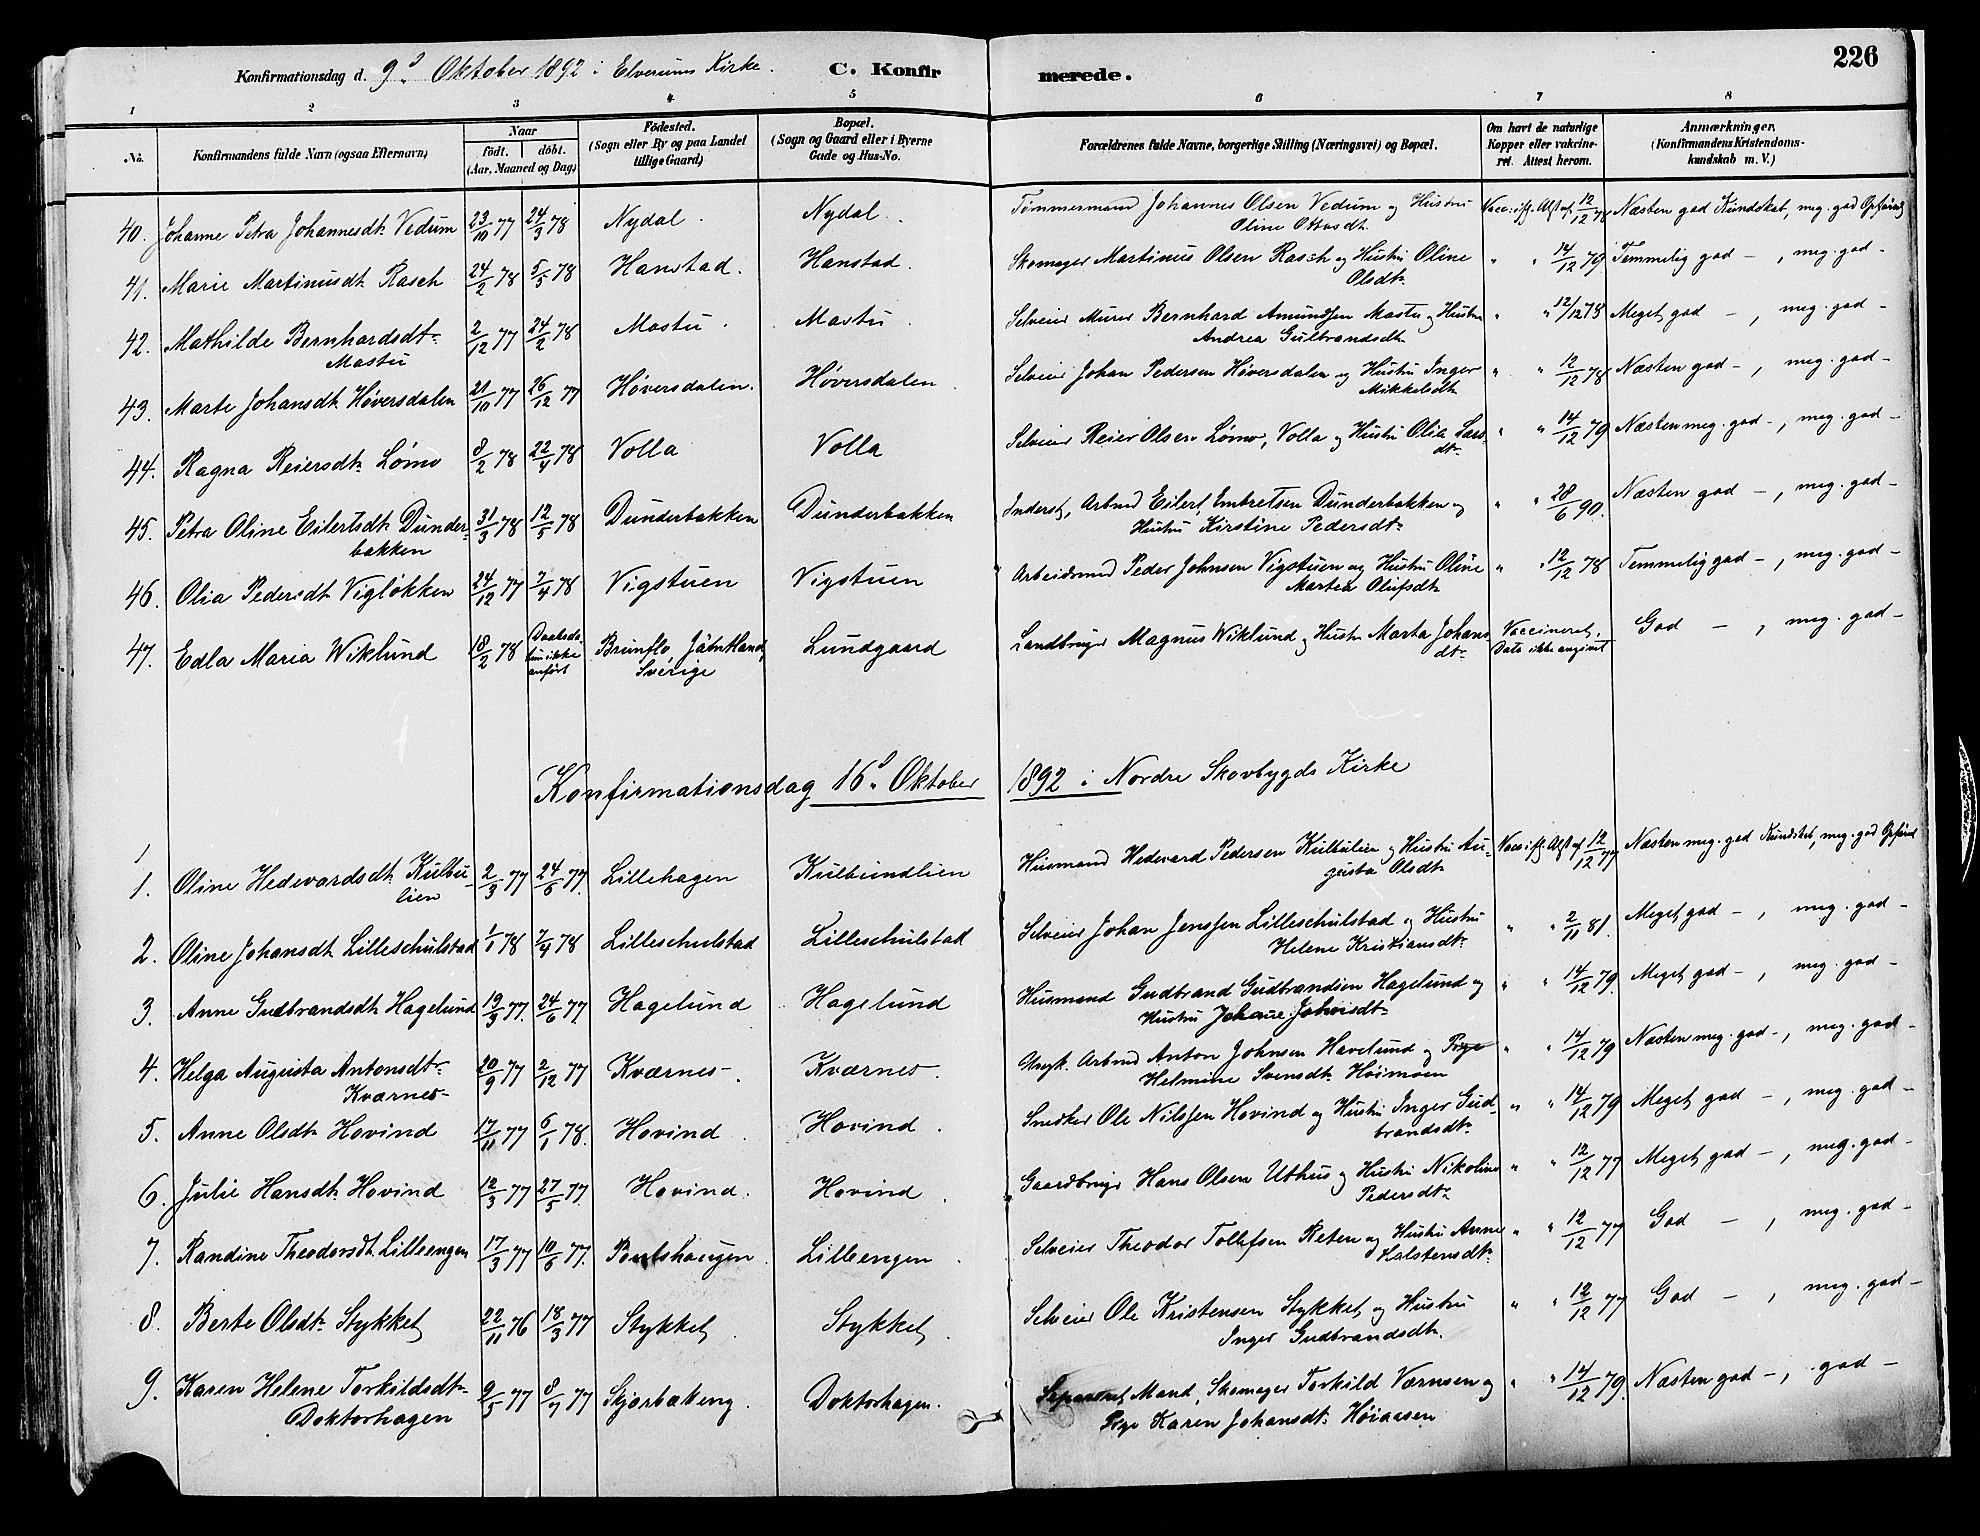 226
Konfirmationsdag d. 9de Oktober 1892 i Elverums Kirke. C. Konfirmerede.
1 2 3 4 5 6 7 8
No. Konfirmandens fulde Navn (ogsaa Efternavn) Naar födt. döbt. (Aar, Maaned og Dag) Födested. (Sogn eller By og paa Landet tillige Gaard) Bopæl. (Sogn og Gaard eller i Byerne Gade og Hus-No. Forældrenes fulde Navne, borgerlige Stilling (Næringsvei) og Bopæl. Om havt de naturlige Kopper eller vakcineret. Attest herom. Anmærkninger, (Konfirmandens Kristendomskundskab m. V.)
40. Johanne Petra Johannesdt. Vedum 23/10 77 24/3 78 Nydal. Nydal. Tømmermand Johannes Olsen Vedum og Hustru Oline Ottosdt. Vacc. ifl. Atst af 12/12 78 Næsten god Kundskab, meg. god Opførsel
41. Marie Martinusdt. Rasch 24/2 78 5/5 78 Hanstad. Hanstad. Skomager Martinus Olsen Rasch og Hustru Oline Olsdt. " " 14/12 79 Temmelig god - , meg. god -
42. Mathilde Bernhardsdt. Mastu 2/12 77 24/2 78 Mastu. Mastu. Selveier Murer Bernhard Amundsen Mastu og Hustru Andrea Gulbrandsdt. " " 12/12 78 Meget god - , meg. god -
43. Marte Johansdt. Høversdalen 21/10 77 26/12 77 Høversdalen. Høversdalen. Selveier Johan Pedersen Høversdalen og Hustru Inger Mikkelsdt. " " 12/12 78 Næsten god - , meg. god -
44. Ragna Reiersdt. Lømo 8/2 78 22/4 78 Volla Volla Selveier Reier Olsen Lømo, Volla og Hustru Olia Larsdt. " " 14/12 79 Næsten meg. god - , meg. god -
45. Petra Oline Eilertsdt. Dunderbakken 31/3 78 12/5 78 Dunderbakken Dunderbakken Inderst, Arbmd Eilert Embretsen Dunderbakken og Hustru Kirstine Pedersdt. " " 28/6 90. Næsten god - , meg. god -
46. Olia Pedersdt. Vigløkken 24/12 77 7/4 78 Vigstuen Vigstuen Arbeidsmd Peder Johnsen Vigstuen og Hustru Oline Martea Olufsdt. " " 12/12 78 Temmelig god - , meg. god -
47. Edla Maria Wiklund 18/2 78 Daabsdatum ikke anført Brunflo, Jämtland, Sverige Lundgaard Landbruger Magnus Wiklund og Hustr. Marta Johansdt. Vaccineret. Dato ikke angivet God - , meg. god -
Konfirmationsdag 16de Oktober 1892 i Nordre Skovbygds Kirke
1. Oline Hedevardsdt. Kulbulien 2/3 77 24/6 77. Lillehagen Kulbundlien Husmand Hedevard Pedersen Kulbulien og Hustru Augusta Olsdt. Vacc. ifl. Atst af 12/12 77 Næsten meg. god Kundskab, meg. god Opførsel
2. Oline Johansdt. Lilleschulstad 1/1 78 7/4 78 Lilleschulstad Lilleschulstad Selveier Johan Jenssen Lilleschulstad og Hustru Helene Kristiansdt. " " 2/11 81. Meget god - , meg. god -
3. Anne Gudbrandsdt. Hagelund 19/3 77. 24/6 77. Hagelund Hagelund Husmand Gudbrand Gudbrandsen Hagelund og Hustru Johanne Johnsdt. " " 14/12 79. Meget god - , meg. god -
4. Helga Augusta Antonsdt. Kværnes 20/9 77 2/12 77 Kværnes. Kværnes. Ungk. Arbmd Anton Johnsen Havelund og Pige Helmine Svensdt. Høimoen " " 14/12 79 Næsten meg. god - , meg. god -
5. Anne Olsdt. Hovind 17/11 77 6/1 78. Hovind. Hovind. Snedker Ole Nilssen Hovind og Hustru Inger Gudbrandsdt. " " 14/12 79 Meget god - , meg. god -
6. Julie Hansdt. Hovind 12/3 77 27/5 77. Hovind. Hovind. Gaardbruger Hans Olsen Uthus og Hustru Nikoline Pedersdt. " " 12/12 77 Meget god - , meg. god -
7. Randine Theodorsdt. Lilleengen 17/3 77 10/6 77. Poulshaugen. Lilleengen. Selveier Theodor Tollefsen Reten og Hustru Anne Halstensdt. " " 12/12 77 God - , meg. god -
8. Berte Olsdt. Stykket 22/11 76 18/3 77 Stykket. Stykket. Selveier Ole Kristensen Stykket og Hustru Inger Gudbrandsdt. " " 12/12 77 God - , meg. god -
9. Karen Helene Torkildsdt. Doktorhagen 9/5 77 8/7 77 Skjørbækeng. Doktorhagen. Separeret Mand, Skomager Torkild Værnsen og Pige Karen Johansdt. Høiaasen " " 14/12 79. Næsten god - , god -